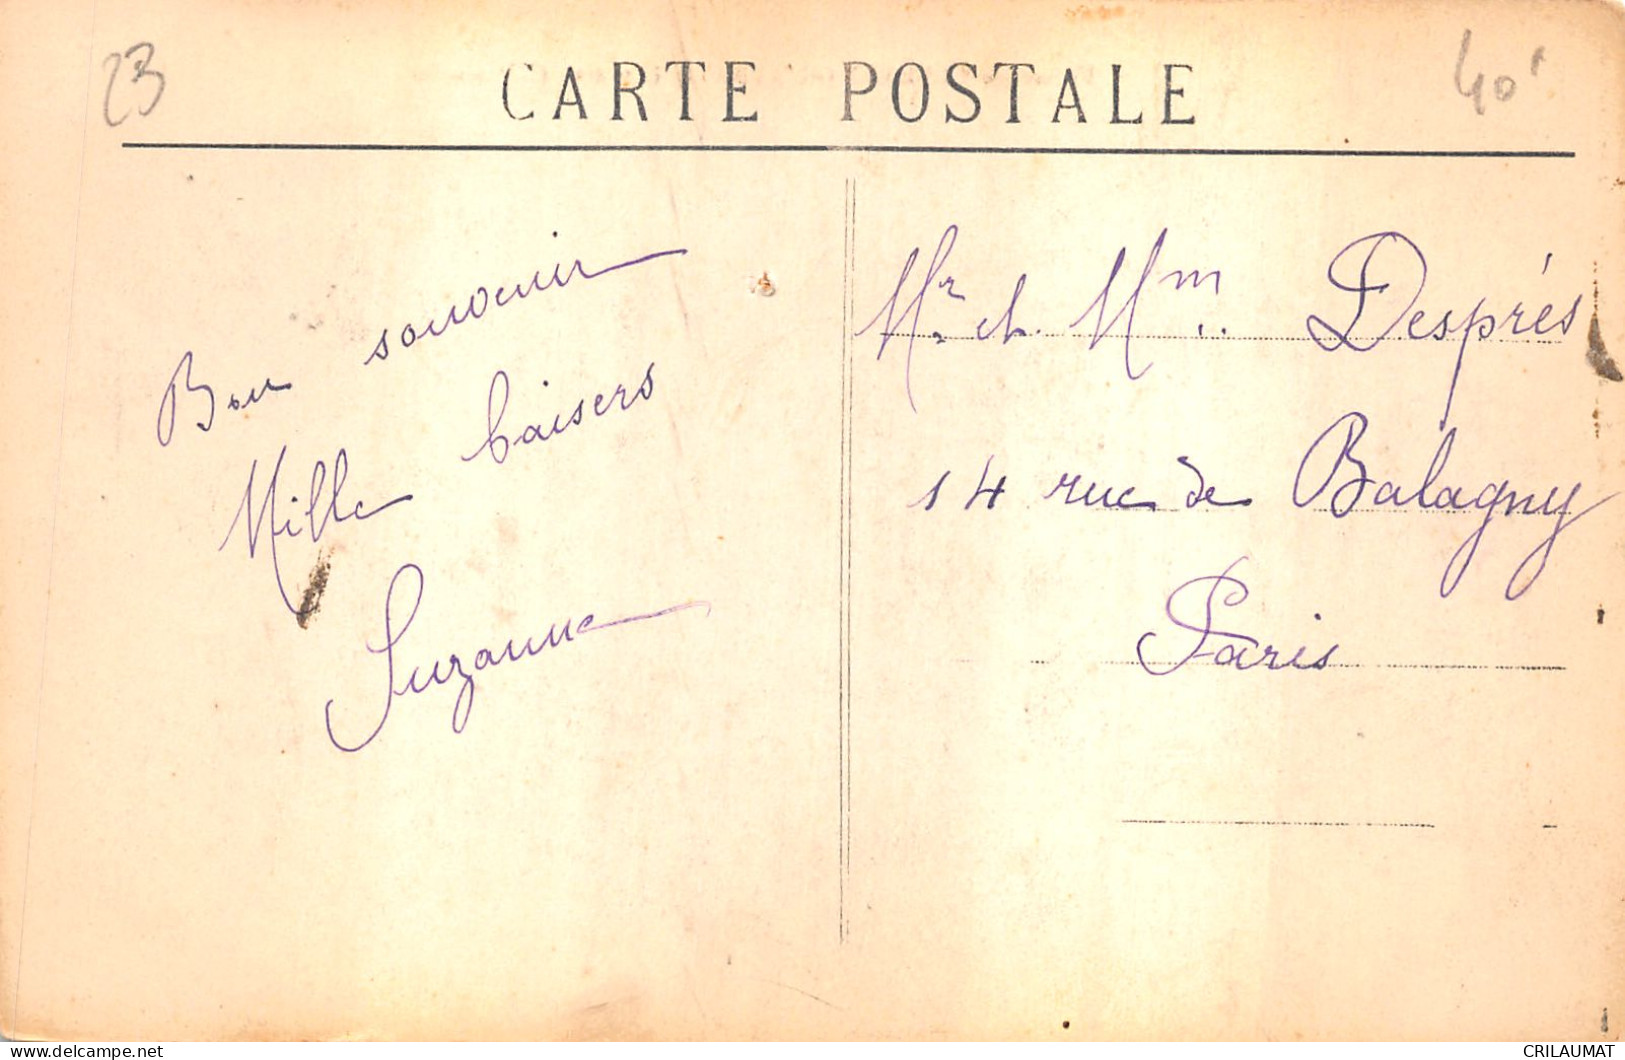 23
CARTE POSTALE
40f
Bon souvenir
Mille baisers
Suzanne
Mr. et. Mm.. Desprès
14 rue de Balagny
Paris
delcampe.net
CRILAUMAT